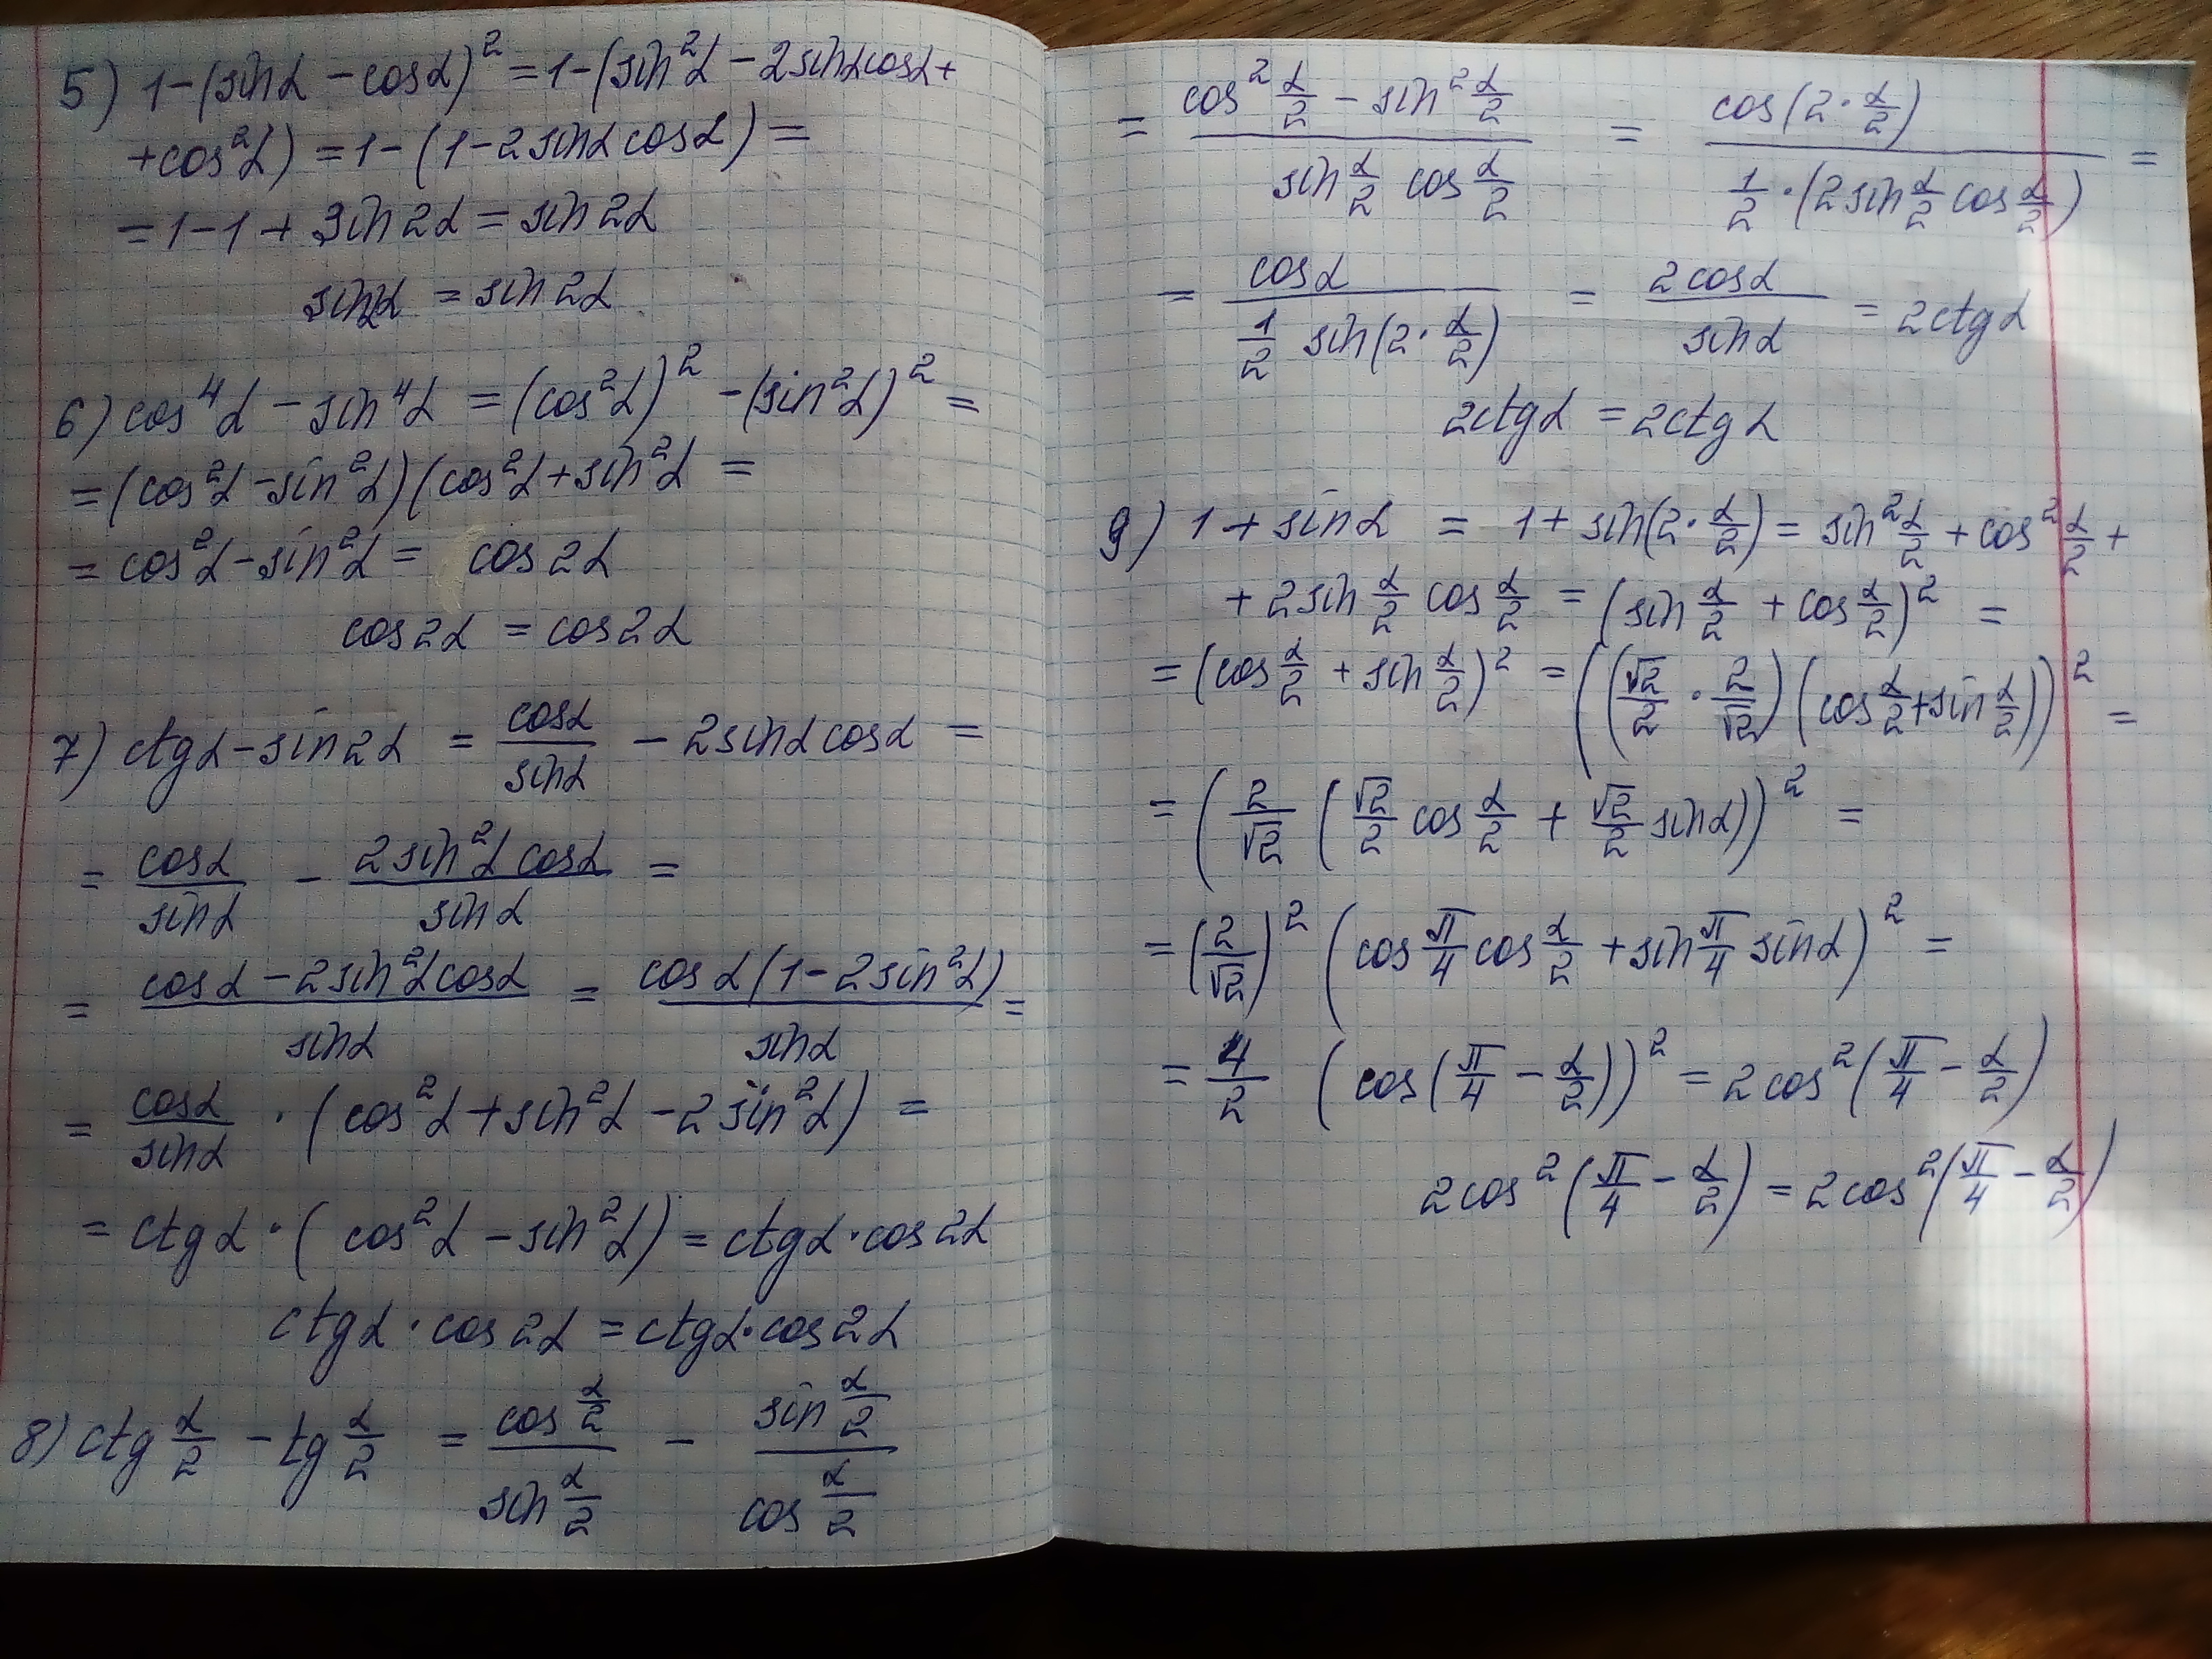 5) 1-(sinα - cosα)² = 1-(sin²α - 2sinαcosα+
+cos²α) = 1-(1-2sinαcosα) =
= 1-1 + sin2α = sin2α
sin2α = sin2α
6) cos⁴α - sin⁴α = (cos²α)² - (sin²α)² =
= (cos²α - sin²α)(cos²α + sin²α =
= cos²α - sin²α = cos2α
cos2α = cos2α
7) ctgα - sin2α = cosα/sinα - 2sinαcosα =
= cosα/sinα - 2sin²αcosα/sinα =
= (cosα - 2sin²αcosα)/sinα = cosα(1-2sin²α)/sinα =
= cosα/sinα · (cos²α + sin²α - 2sin²α) =
= ctgα · (cos²α - sin²α) = ctgα · cos2α
ctgα · cos2α = ctgα · cos2α
8) ctg α/2 - tg α/2 = cos α/2 / sin α/2 - sin α/2 / cos α/2
= (cos² α/2 - sin² α/2)/(sin α/2 cos α/2) = cos(2 · α/2)/(1/2 · (2sin α/2 cos α/2)) =
= cosα/(1/2 sin(2 · α/2)) = 2cosα/sinα = 2ctgα
2ctgα = 2ctgα
9) 1 + sinα = 1 + sin(2 · α/2) = sin² α/2 + cos² α/2 +
+ 2sin α/2 cos α/2 = (sin α/2 + cos α/2)² =
= (cos α/2 + sin α/2)² = ((√2/2 · 2/√2)(cos α/2 + sin α/2))² =
= (2/√2 (√2/2 cos α/2 + √2/2 sinα))² =
= (2/√2)² (cos π/4 cos α/2 + sin π/4 sinα)² =
= 4/2 (cos(π/4 - α/2))² = 2cos²(π/4 - α/2)
2cos²(π/4 - α/2) = 2cos²(π/4 - α/2)